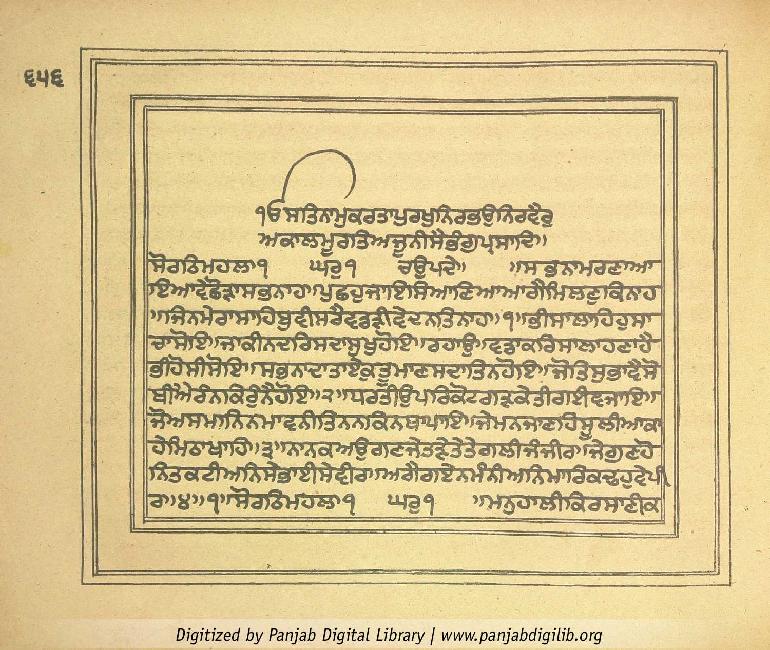 ੬੫੬
੧ਓ ਸਤਿਨਾਮੁਕਰਤਾਪੁਰਖੁਨਿਰਭਉਨਿਰਵੈਰੁ
ਅਕਾਲਮੂਰਤਿਅਜੂਨੀਸੈਭੰਗੁਰਪ੍ਰਸਾਦਿ॥
ਸੋਰਠਿਮਹਲਾ੧ ਘਰੁ੧ ਚਉਪਦੇ॥ ॥ਸਭਨਾਮਰਣਾਆ
ਇਆਵੇਛੋੜਾਸਭਨਾਹ॥ਪੁਛਹੁਜਾਇਸਿਆਣਿਆਆਗੈਮਿਲਣੁਕਿਨਾਹ
॥ਜਿਨਮੇਰਾਸਾਹਿਬੁਵੀਸਰੈਵਡੜੀਵੇਦਨਤਿਨਾਹ॥੧॥ਭੀਸਾਲਾਹਿਹੁਸਾ
ਚਾਸੋਇ॥ਜਾਕੀਨਦਰਿਸਦਾਸੁਖੁਹੋਇ॥ਰਹਾਉ॥ਵਡਾਕਰਿਸਾਲਾਹਣਾਹੈ
ਭੀਹੋਸੀਸੋਇ॥ਸਭਨਾਦਾਤਾਏਕੁਤੂਮਾਣਸਦਾਤਿਨਹੋਇ॥ਜੋਤਿਸੁਭਾਵੈਸੋ
ਥੀਐਰੰਨਕਿਰੁੰਨੈਹੋਇ॥੨॥ਧਰਤੀਉਪਰਿਕੋਟਗੜਕੇਤੀਗਈਵਜਾਇ॥
ਜੋਅਸਮਾਨਿਨਮਾਵਨੀਤਿਨਨਕਿਨਥਾਪਾਇ॥ਜੇਮਨਜਾਣਹਿਸੂਲੀਆਕਾ
ਹੇਮਿਠਾਖਾਹਿ॥੩॥ਨਾਨਕਅਉਗਣਜੇਤੜੇਤੇਤੇਗਲੀਜੰਜੀਰ॥ਜੇਗੁਣਹੋ
ਨਿਤਕਟੀਅਨਿਸੇਭਾਈਸੇਵੀਰ॥ਅਗੈਗਏਨਮੰਨੀਅਨਿਮਾਰਿਕਢਹੁਵੇਪੀ
ਰ॥੪॥੧॥ਸੋਰਠਿਮਹਲਾ੧ ਘਰੁ੧ ॥ਮਨੁਹਾਲੀਕਿਰਸਾਣੀਕ
Digitized by Panjab Digital Library | www.panjabdigilib.org